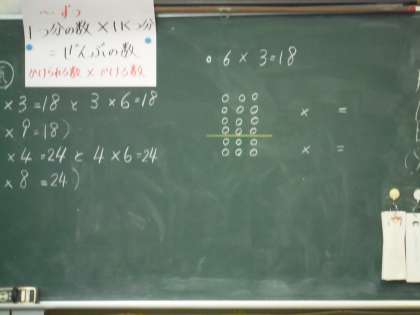 〜ずつ
1つ分の数×いくつ分
=ぜんぶの数
かけられる数×かける数
×3=18と3×6=18
×9=18)
×4=24と4×6=24
×8=24)
6×3=18
× =
× =